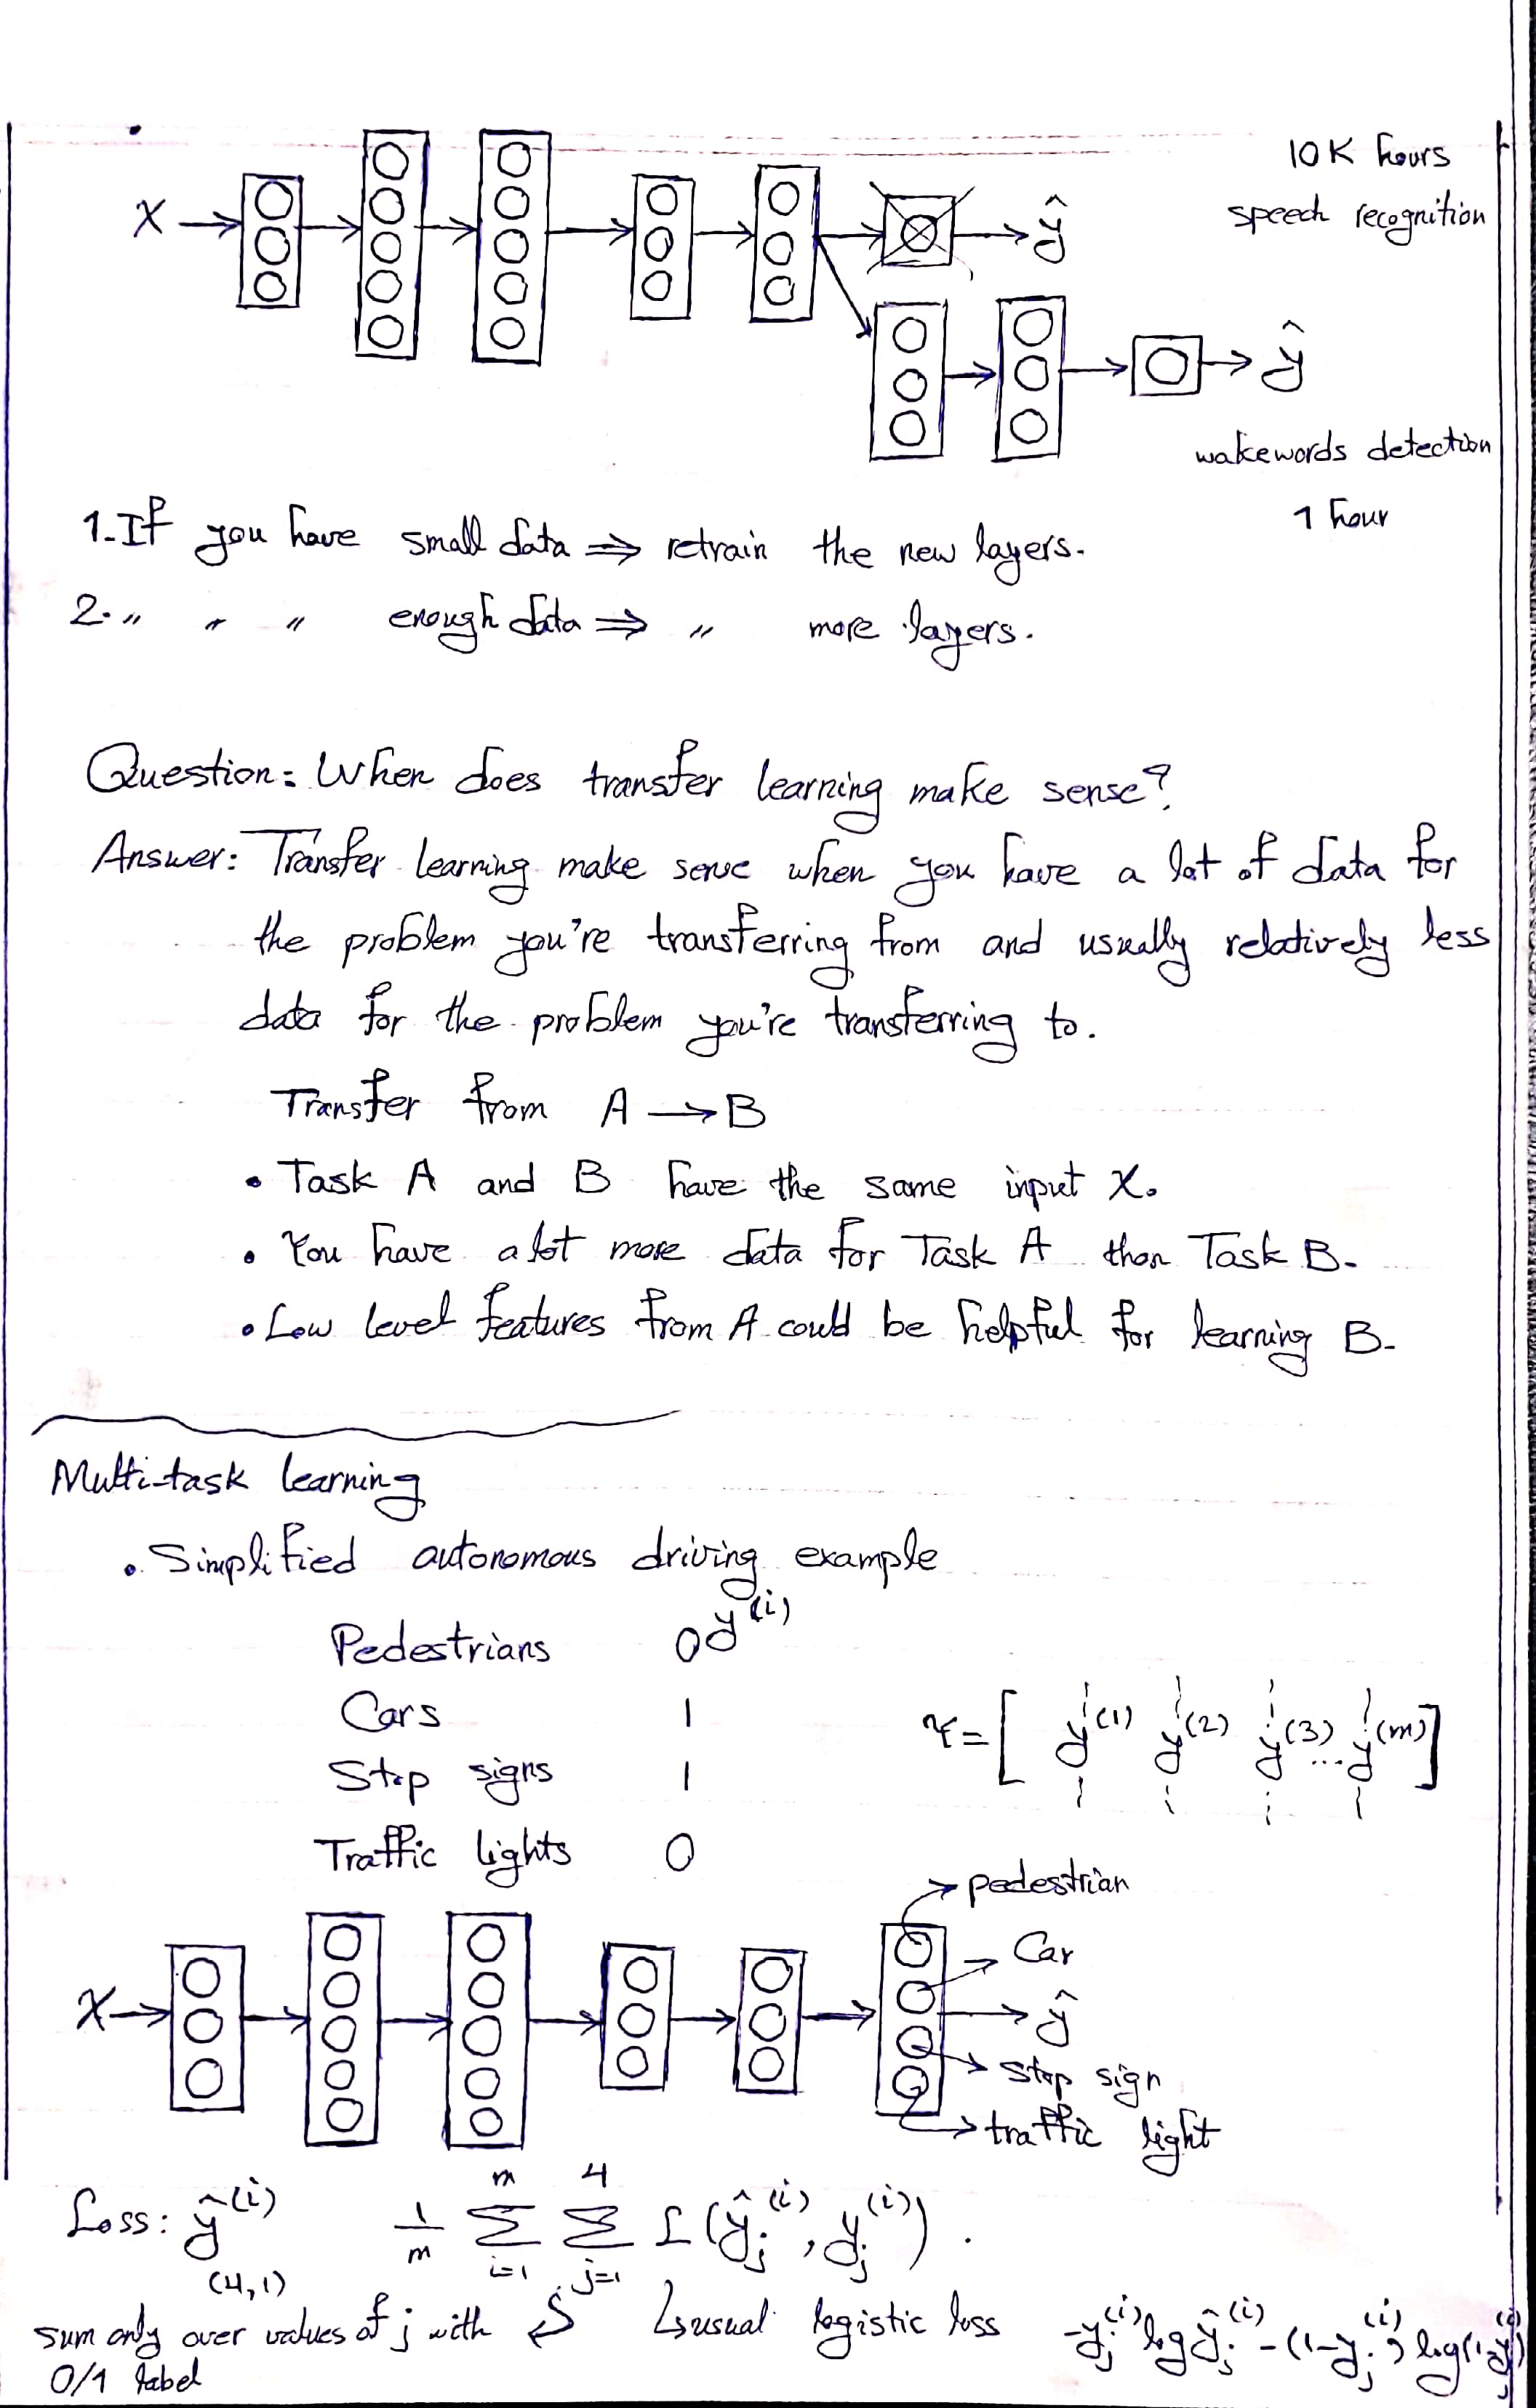 10K hours
speech recognition
X → ŷ
ŷ
wakewords detection
1 hour
1-If you have small data ⇒ retrain the new layers.
2. " " " enough data ⇒ " more layers.
Question: When does transfer learning make sense?
Answer: Transfer learning make sense when you have a lot of data for
the problem you're transferring from and usually relatively less
data for the problem you're transferring to.
Transfer from A → B
• Task A and B have the same input X.
• You have a lot more data for Task A than Task B.
• Low level features from A could be helpful for learning B.
Multi-task learning
• Simplified autonomous driving example
y^(i)
Pedestrians 0
Cars 1
Stop signs 1
Traffic lights 0
Y = [ y^(1) y^(2) y^(3) ... y^(m) ]
pedestrian
Car
X → ŷ
stop sign
traffic light
Loss: ŷ^(i) 1/m Σ_{i=1}^{m} Σ_{j=1}^{4} L(ŷ_j^(i), y_j^(i)).
(4,1)
sum only over values of j with
0/1 label
usual logistic loss -y_j^(i) log ŷ_j^(i) - (1-y_j^(i)) log(1-ŷ_j^(i))